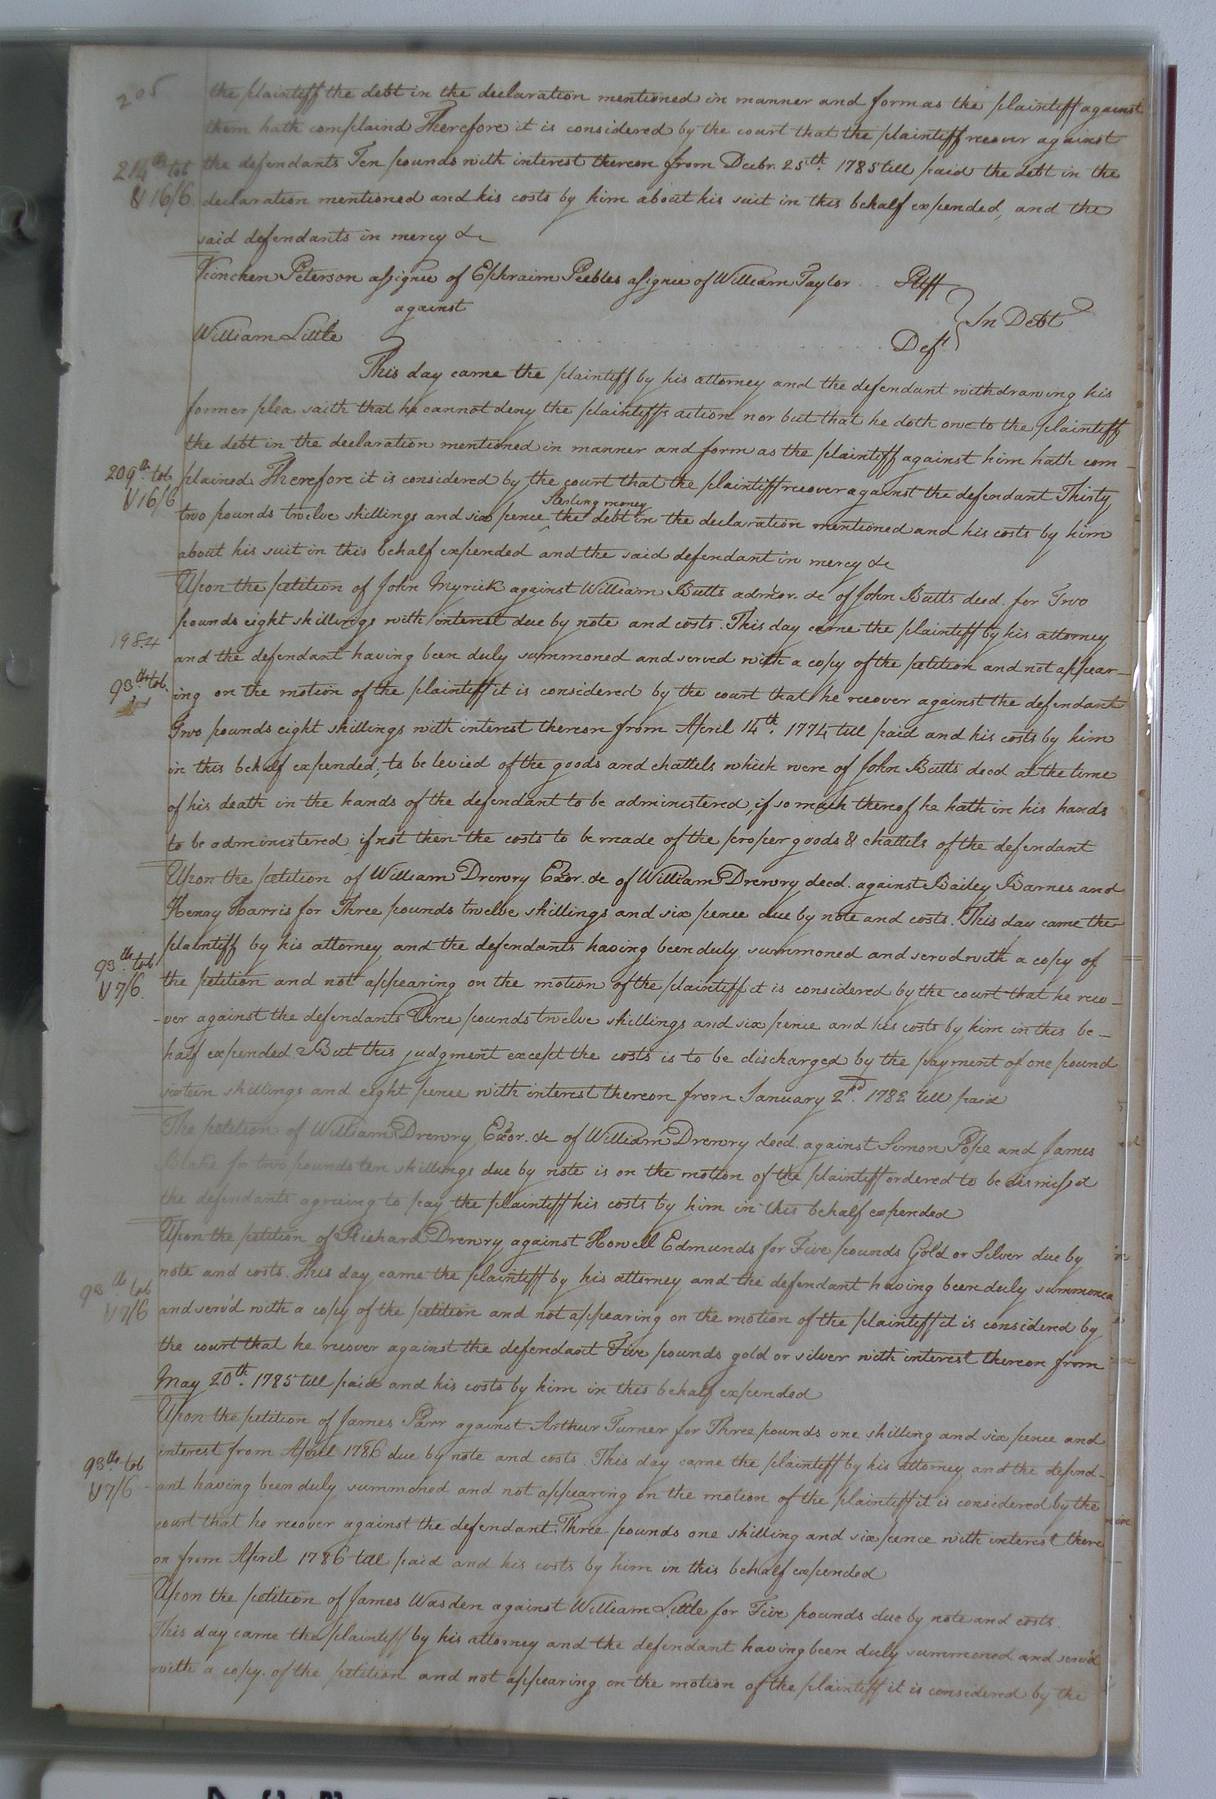 205
the plaintiff the debt in the declaration mentioned in manner and form as the plaintiff against
them hath complaind Therefore it is considered by the court that the plaintiff recover against
214th tob
V 16/6
the defendants Ten pounds with interest thereon from Decbr. 25th. 1785 till paid the debt in the
declaration mentioned and his costs by him about his suit in this behalf expended, and the
said defendants in mercy &c
Kinchen Peterson assignee of Ephraim Peebles assignee of William Taylor .. Pltff
against
In Debt
William Little Deft
This day came the plaintiff by his attorney and the defendant withdrawing his
former plea saith that he cannot deny the plaintiffs action nor but that he doth owe to the plaintiff
the debt in the declaration mentioned in manner and form as the plaintiff against him hath com-
209th tob
V 16/6
plained Therefore it is considered by the court that the plaintiff recover against the defendant Thirty
Sterling money
two pounds twelve shillings and six pence ^ the debt in the declaration mentioned and his costs by him
about his suit in this behalf expended and the said defendant in mercy &c
Upon the petition of John Myrick against William Butts admor. &c of John Butts decd. for Two
pounds eight shillings with interest due by note and costs. This day came the plaintiff by his attorney
1984
and the defendant having been duly summoned and served with a copy of the petition and not appear-
93th tob.
ing on the motion of the plaintiff it is considered by the court that he recover against the defendant
Two pounds eight shillings with interest thereon from April 14th. 1774 till paid and his costs by him
in this behalf expended, to be levied of the goods and chattels which were of John Butts decd at the time
of his death in the hands of the defendant to be administered, if so much thereof he hath in his hands
to be administered, if not then the costs to be made of the proper goods & chattels of the defendant
Upon the petition of William Drewry Exor. &c of William Drewry decd. against Bailey Barnes and
Henry Harris for Three pounds twelve shillings and six pence due by note and costs. This day came the
plaintiff by his attorney and the defendants having been duly summoned and servd with a copy of
93th tob
V 7/6.
the petition and not appearing on the motion of the plaintiff it is considered by the court that he reco-
ver against the defendants Three pounds twelve shillings and six pence and his costs by him in this be-
half expended But this judgment except the costs is to be discharged by the payment of one pound
sixteen shillings and eight pence with interest thereon from January 2nd. 1782 till paid
The petition of William Drewry Exor. &c of William Drewry decd. against Simon Pope and James
Blake for two pounds ten shillings due by note is on the motion of the plaintiff ordered to be dismissd
the defendants agreeing to pay the plaintiff his costs by him in this behalf expended
Upon the petition of Richard Drewry against Howell Edmunds for Five pounds Gold or Silver due by
93th tob
V 7/6
note and costs. This day came the plaintiff by his attorney and the defendant having been duly summoned
and serv'd with a copy of the petition and not appearing on the motion of the plaintiff it is considered by
the court that he recover against the defendant Five pounds gold or silver with interest thereon from
May 20th. 1785 till paid and his costs by him in this behalf expended
Upon the petition of James Parr against Arthur Turner for Three pounds one shilling and six pence and
93th tob
V 7/6
interest from April 1786 due by note and costs. This day came the plaintiff by his attorney and the defend-
ant having been duly summoned and not appearing on the motion of the plaintiff it is considered by the
court that he recover against the defendant Three pounds one shilling and six pence with interest there
on from April 1786 till paid and his costs by him in this behalf expended
Upon the petition of James Wasden against William Little for Five pounds due by note and costs.
This day came the plaintiff by his attorney and the defendant having been duly summoned and serv'd
with a copy of the petition and not appearing on the motion of the plaintiff it is considered by the